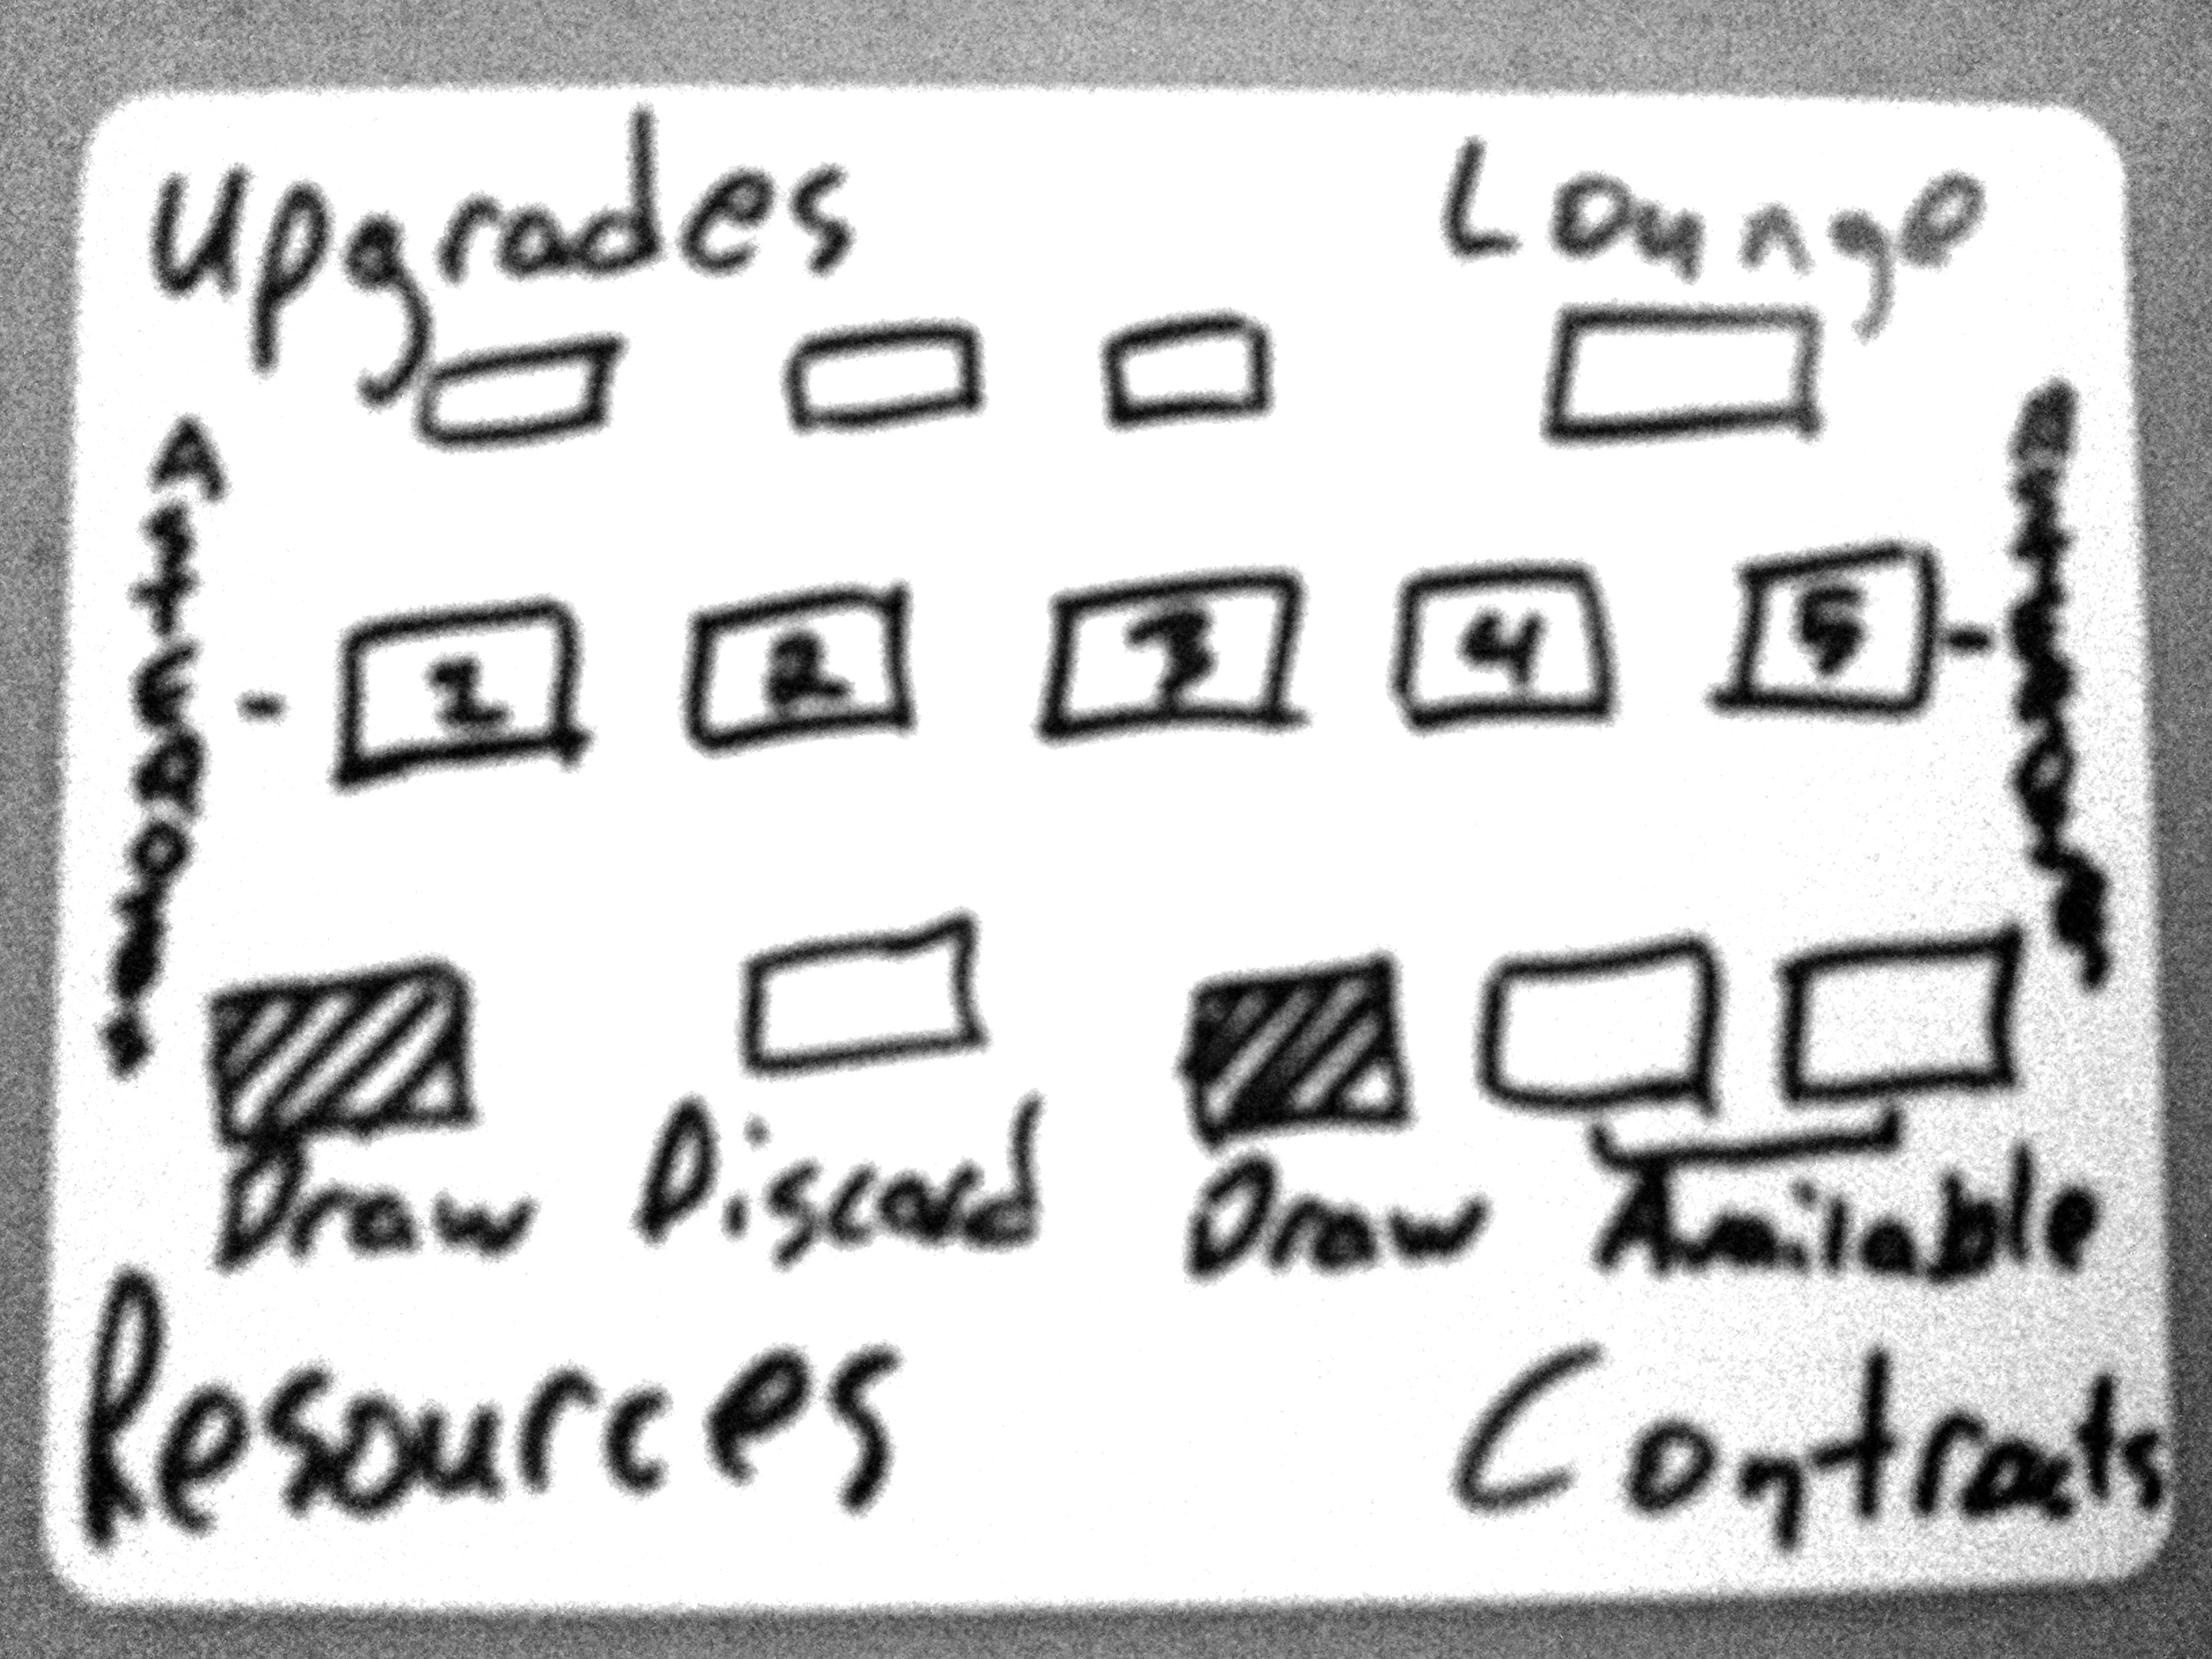 Upgrades Lounge
- 1 2 3 4 5 -
Draw Discard Draw Available
Resources Contracts